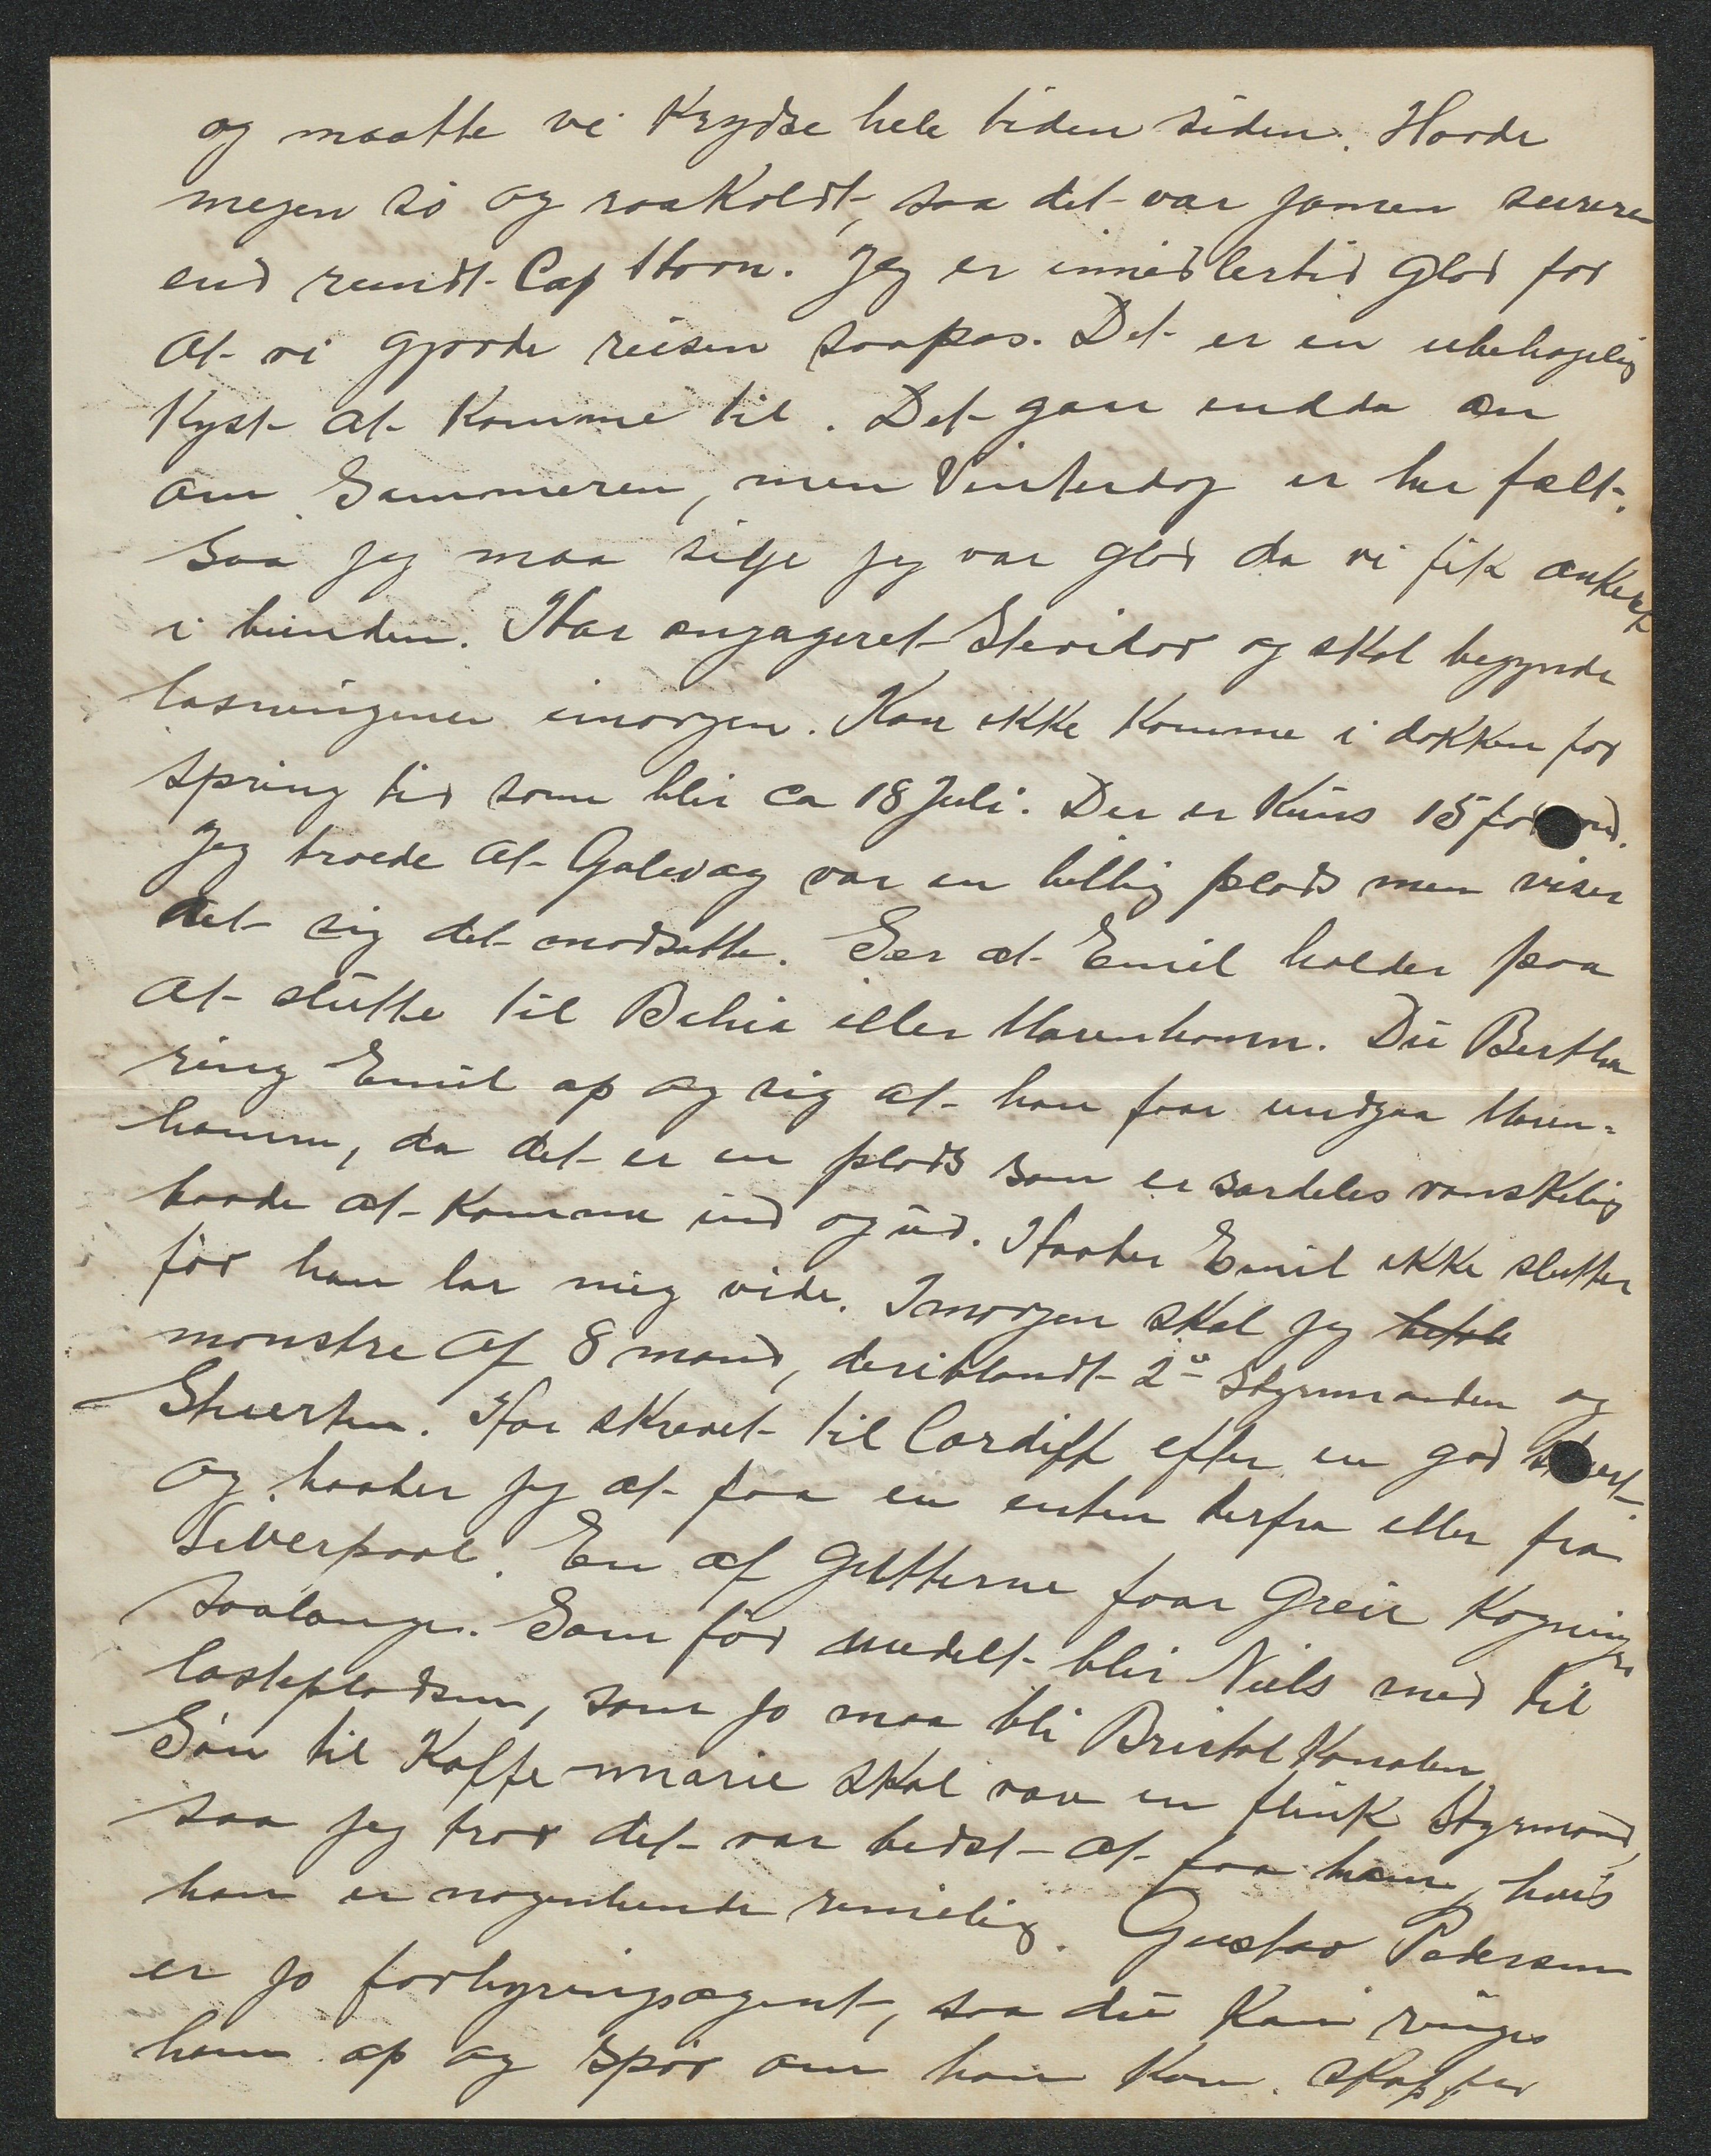 og maatte vi Krydse hele tiden siden. Havde
megen sö og raakoldt, saa det var jamen surere
end rundt Cap Horn. Jeg er imidlertid glad for
at vi gjorde reisen saapas. Det er en ubehagelig
Kyst at Komme til. Det gaar endda an
om Sommeren, men Vinterdag er her fælt.
Saa jeg maa sige jeg var glad da vi fik ankeret
i bunden. Har engageret Stevidor og skal begynde
losningen imorgen. Kan ikke Komme i dokken for
spring tid som blir ca 18 Juli. Der er Kuns 15 fod
Jeg troede at Galway var en billig plads men viser
det sig det modsatte. Ser at Emil holder paa
at slutte til Bahia eller Marenhamn. Du Bertha
ring Emil op og sig at han faar undgaa Maren=
hamn, da det er en plads som er særdeles vanskelig
baade at Komme ind og ud. Haaber Emil ikke slutter
för han lar mig vide. Imorgen skal jeg
mønstre af 8 mand, deriblandt 2den Styrmanden og
Stuerten. Har skrevet til Cardiff efter en god stuert
og haaber jeg at faa en enten derfra eller fra
Liverpool. En af Gutterne faar Greie Kogningen
saalænge. Som för meddelt blir Niels med til
lastepladsen, som jo maa bli Bristol Kanalen,
Sön til Kaffe-marie skal være en flink Styrmand,
saa jeg tror det var bedst at faa ham, hvis
han er nogenlunde rimelig. Gustav Pedersen
er jo forhyringsagent, saa du Kan ringe
ham op og spör om han Kan skaffer